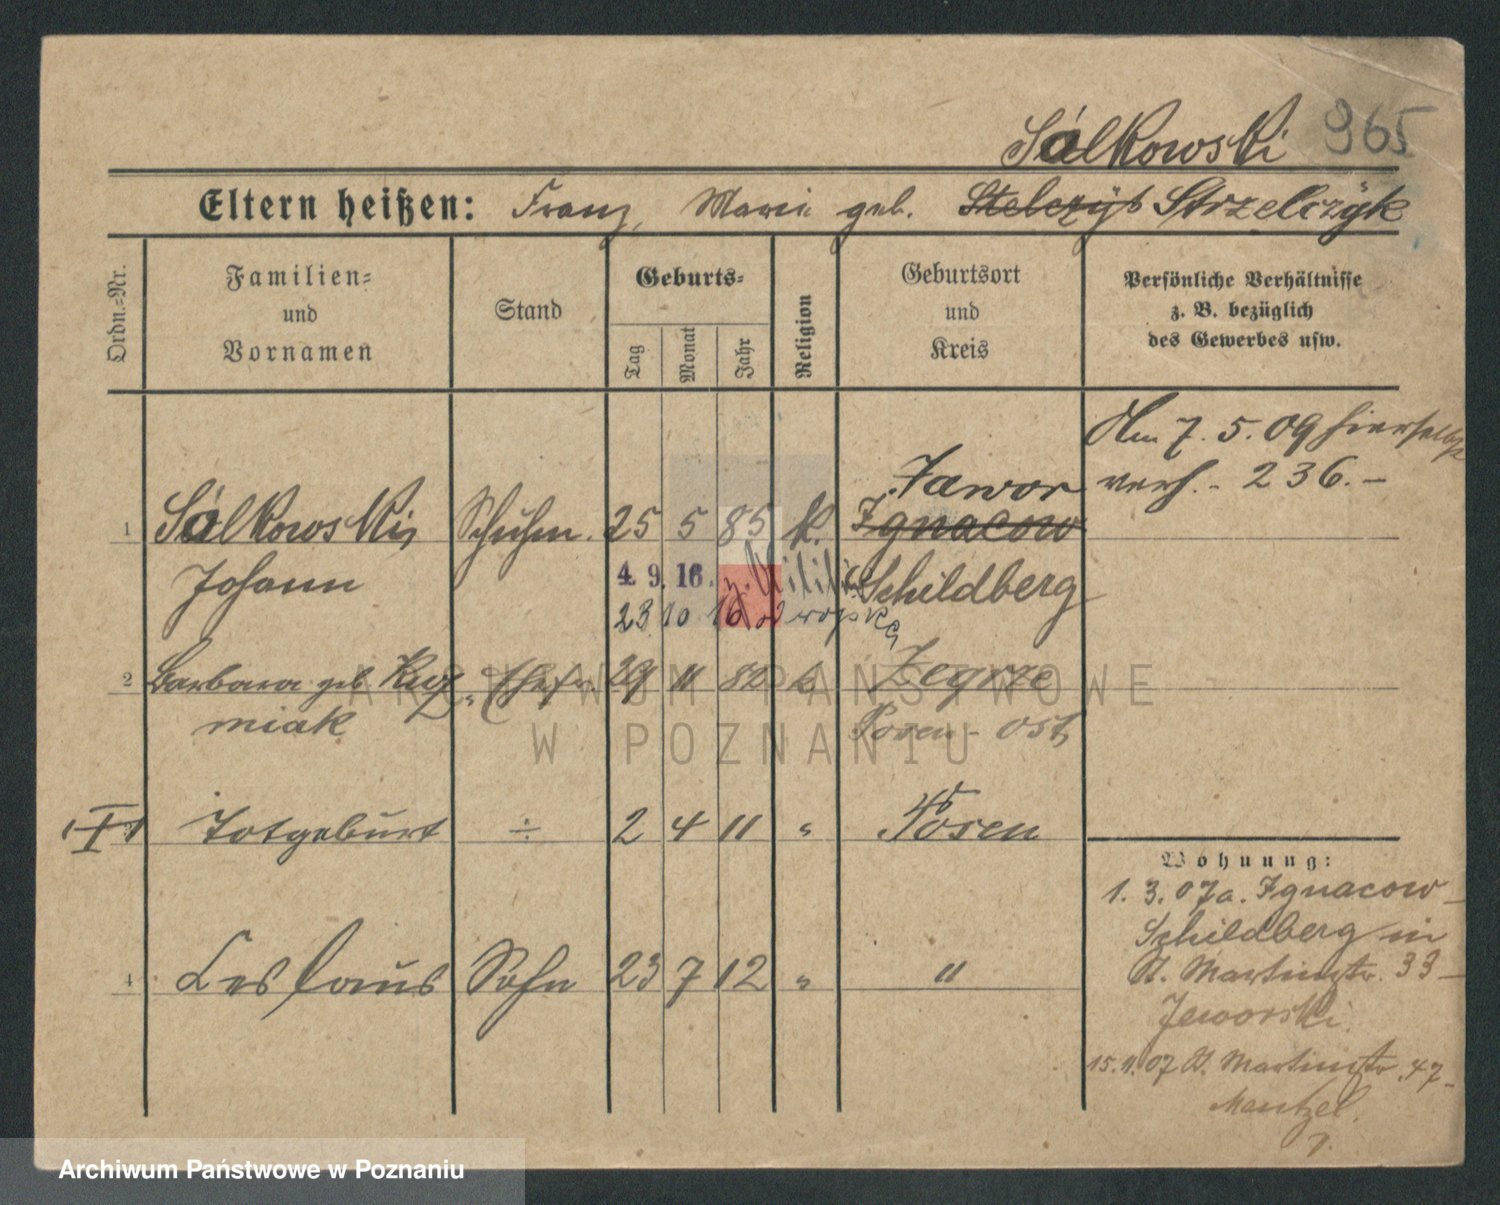 Sálkowski 965
Eltern heißen: Franz, Marie geb. Stelczyk Strzelczÿk
Ordn.-Nr.
Familien-
und
Vornamen
Stand
Geburts-
Tag
Monat
Jahr
Religion
Geburtsort
und
Kreis
Persönliche Verhältnisse
z. B. bezüglich
des Gewerbes usw.
Am 7. 5. 09 hierselbst
verh. - 236. -
Jawor
1 Sálkowski, Schuhm. 25 5 85 k. Ignacow
Johann 4. 9. 16. z. Militär Schildberg
23 10 16 od wojska
2 Barbara geb. Kuź- Ehefr. 29 11 82 k. Zegrze
miak Posen-Ost
3 Totgeburt ÷ 2 4 11 " Posen
4 Ceslaus Sohn 23 7 12 " "
Wohnung:
1. 3. 07 a. Ignacow-
Schildberg in
St. Martinstr. 33-
Jeworski.
15. 11. 07 St. Martinstr. 47-
Mentzel.
ARCHIWUM PAŃSTWOWE
W POZNANIU
Archiwum Państwowe w Poznaniu